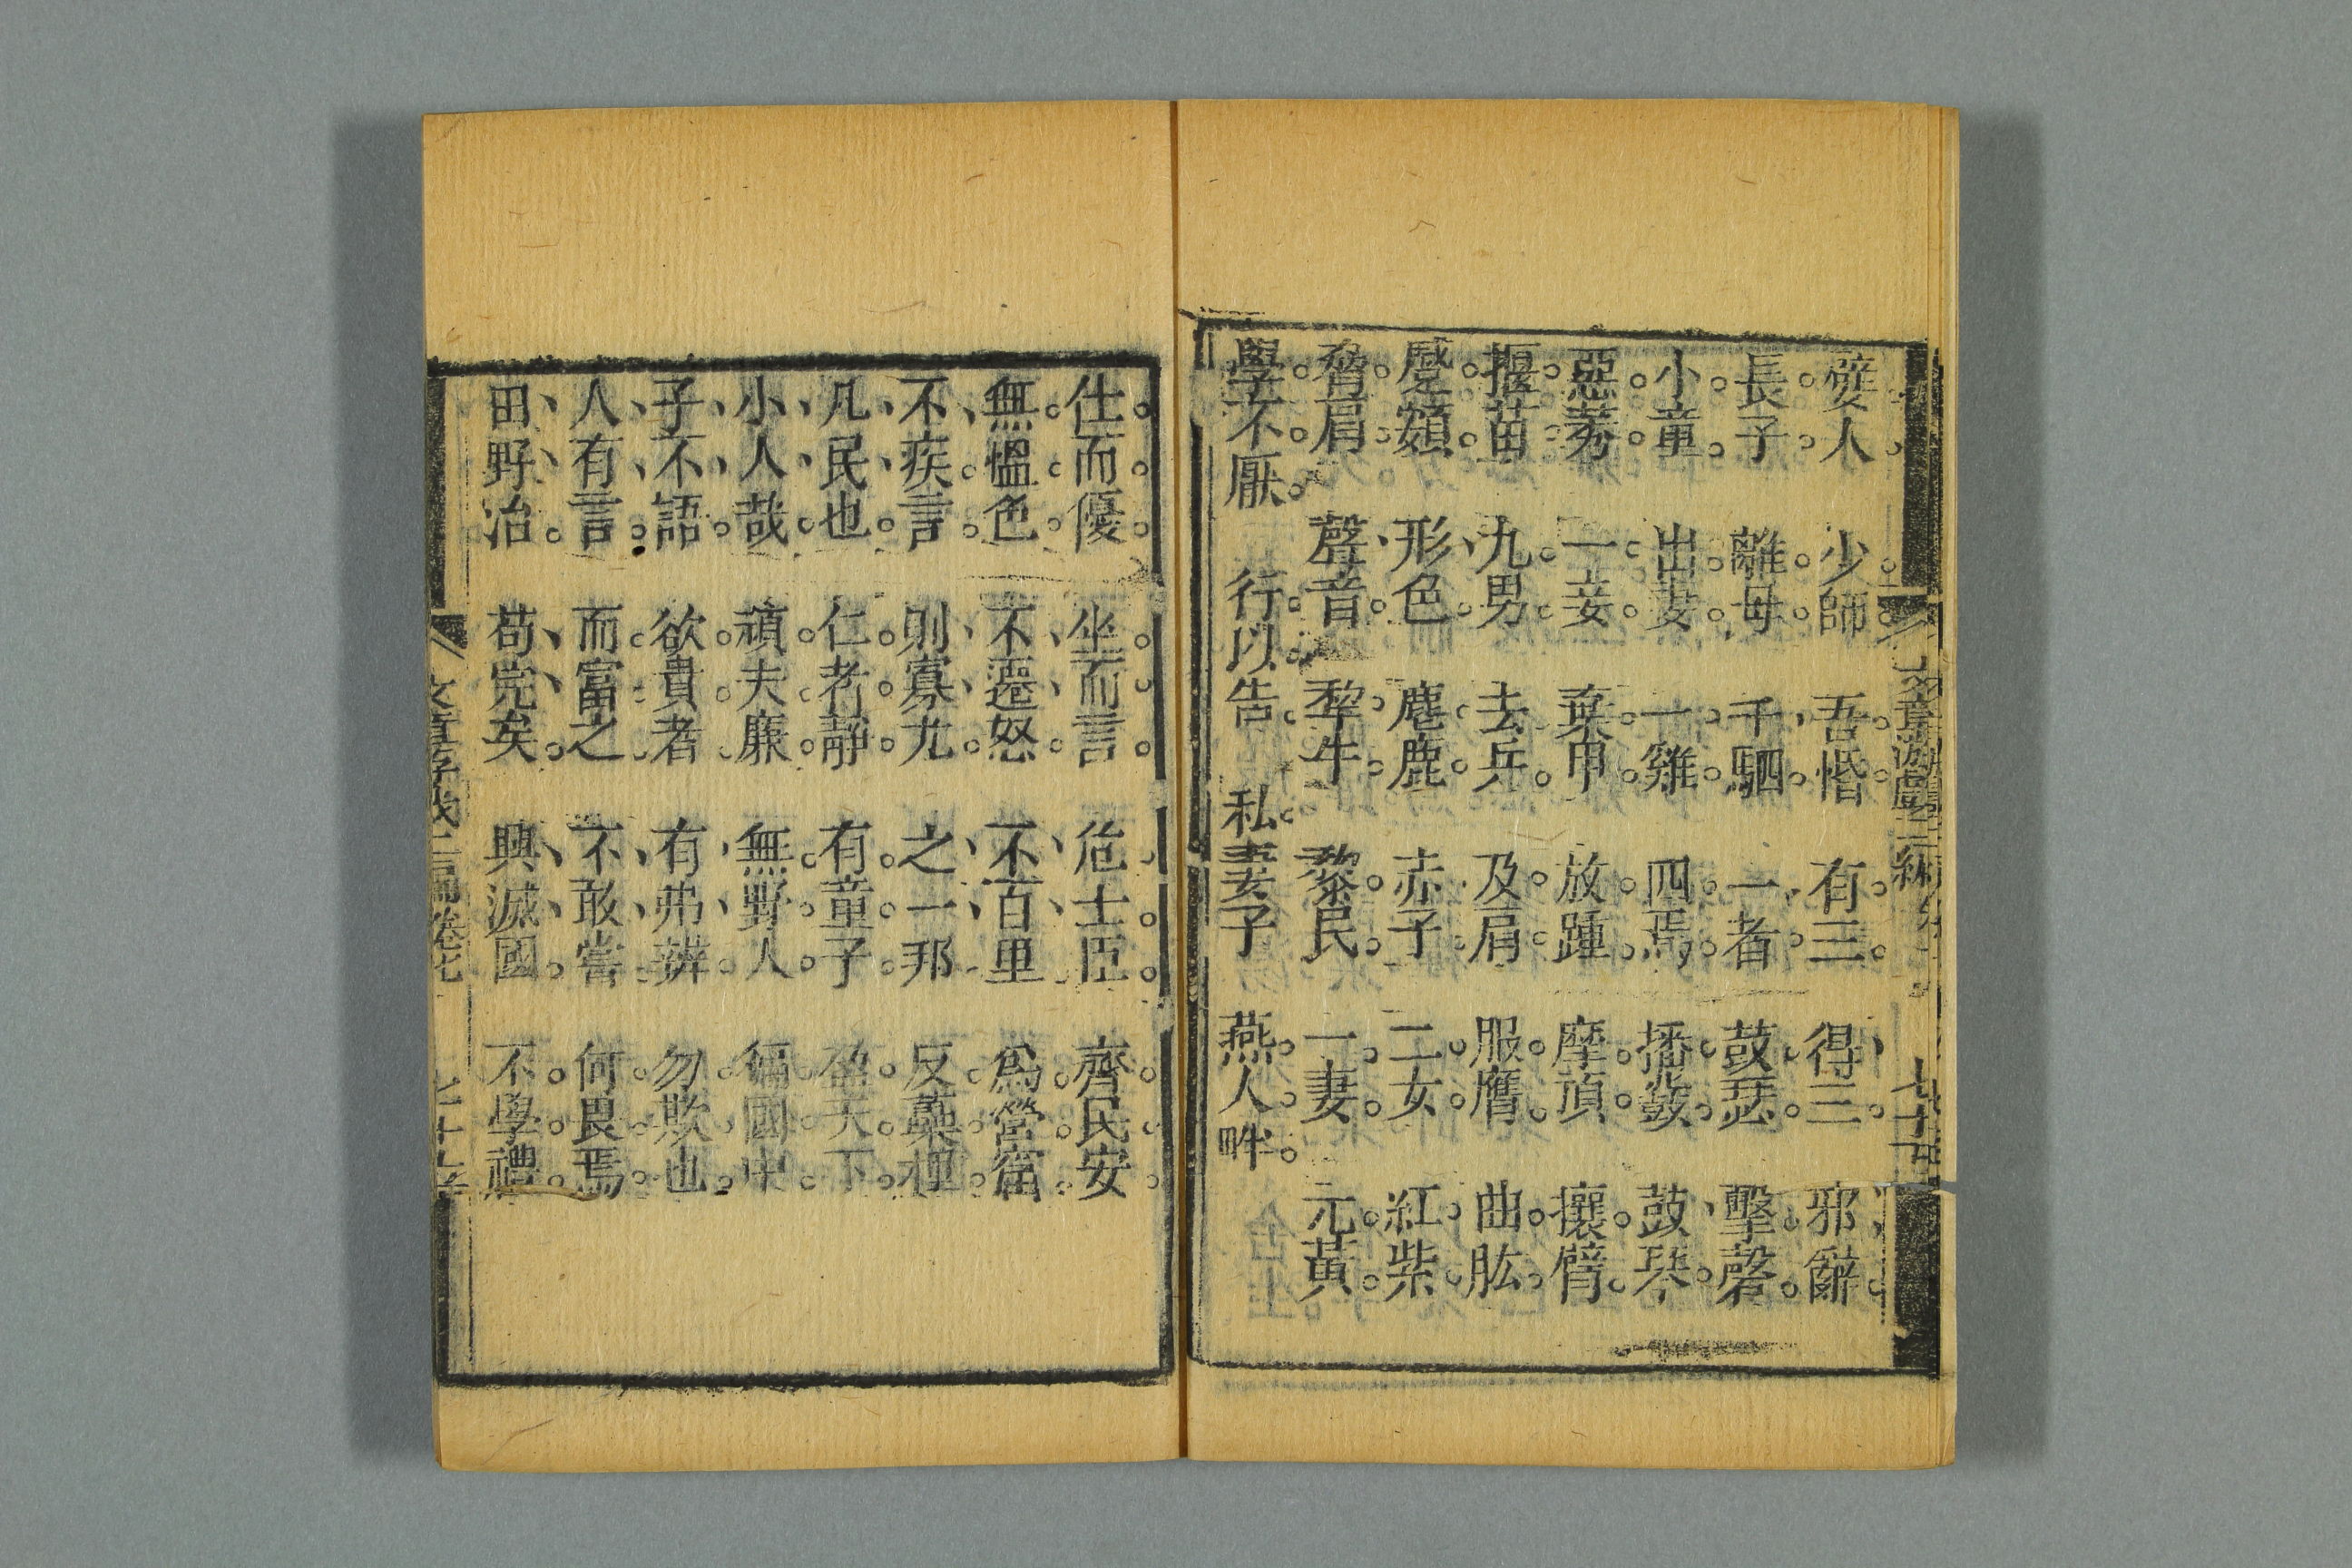 嬖人　少師　吾惛　有三　得三　邪辭
長子　離母　千駟　一者　鼓瑟　擊磬
小童　出妻　一雞　四焉　播鼗　鼓琴
惡莠　一妾　棄甲　放踵　摩頂　攘臂
揠苗　九男　去兵　及肩　服膺　曲肱
蹙頞　形色　麀鹿　赤子　二女　紅紫
脅肩　聲音　犂牛　黎民　一妻　元黃
學不厭　行以告　私妻子　燕人畔
文章游戲三編　卷七　七十五
仕而優　坐而言　危士臣　齊民安
無慍色　不遷怒　不百里　爲營窟
不疾言　則寡尤　之一邦　反虆梩
凡民也　仁者靜　有童子　盈天下
小人哉　頑夫廉　無野人　徧國中
子不語　欲貴者　有弗辨　勿欺也
人有言　而富之　不敢嘗　何畏焉
田野治　苟完矣　興滅國　不學禮
文章游戲三編　卷七